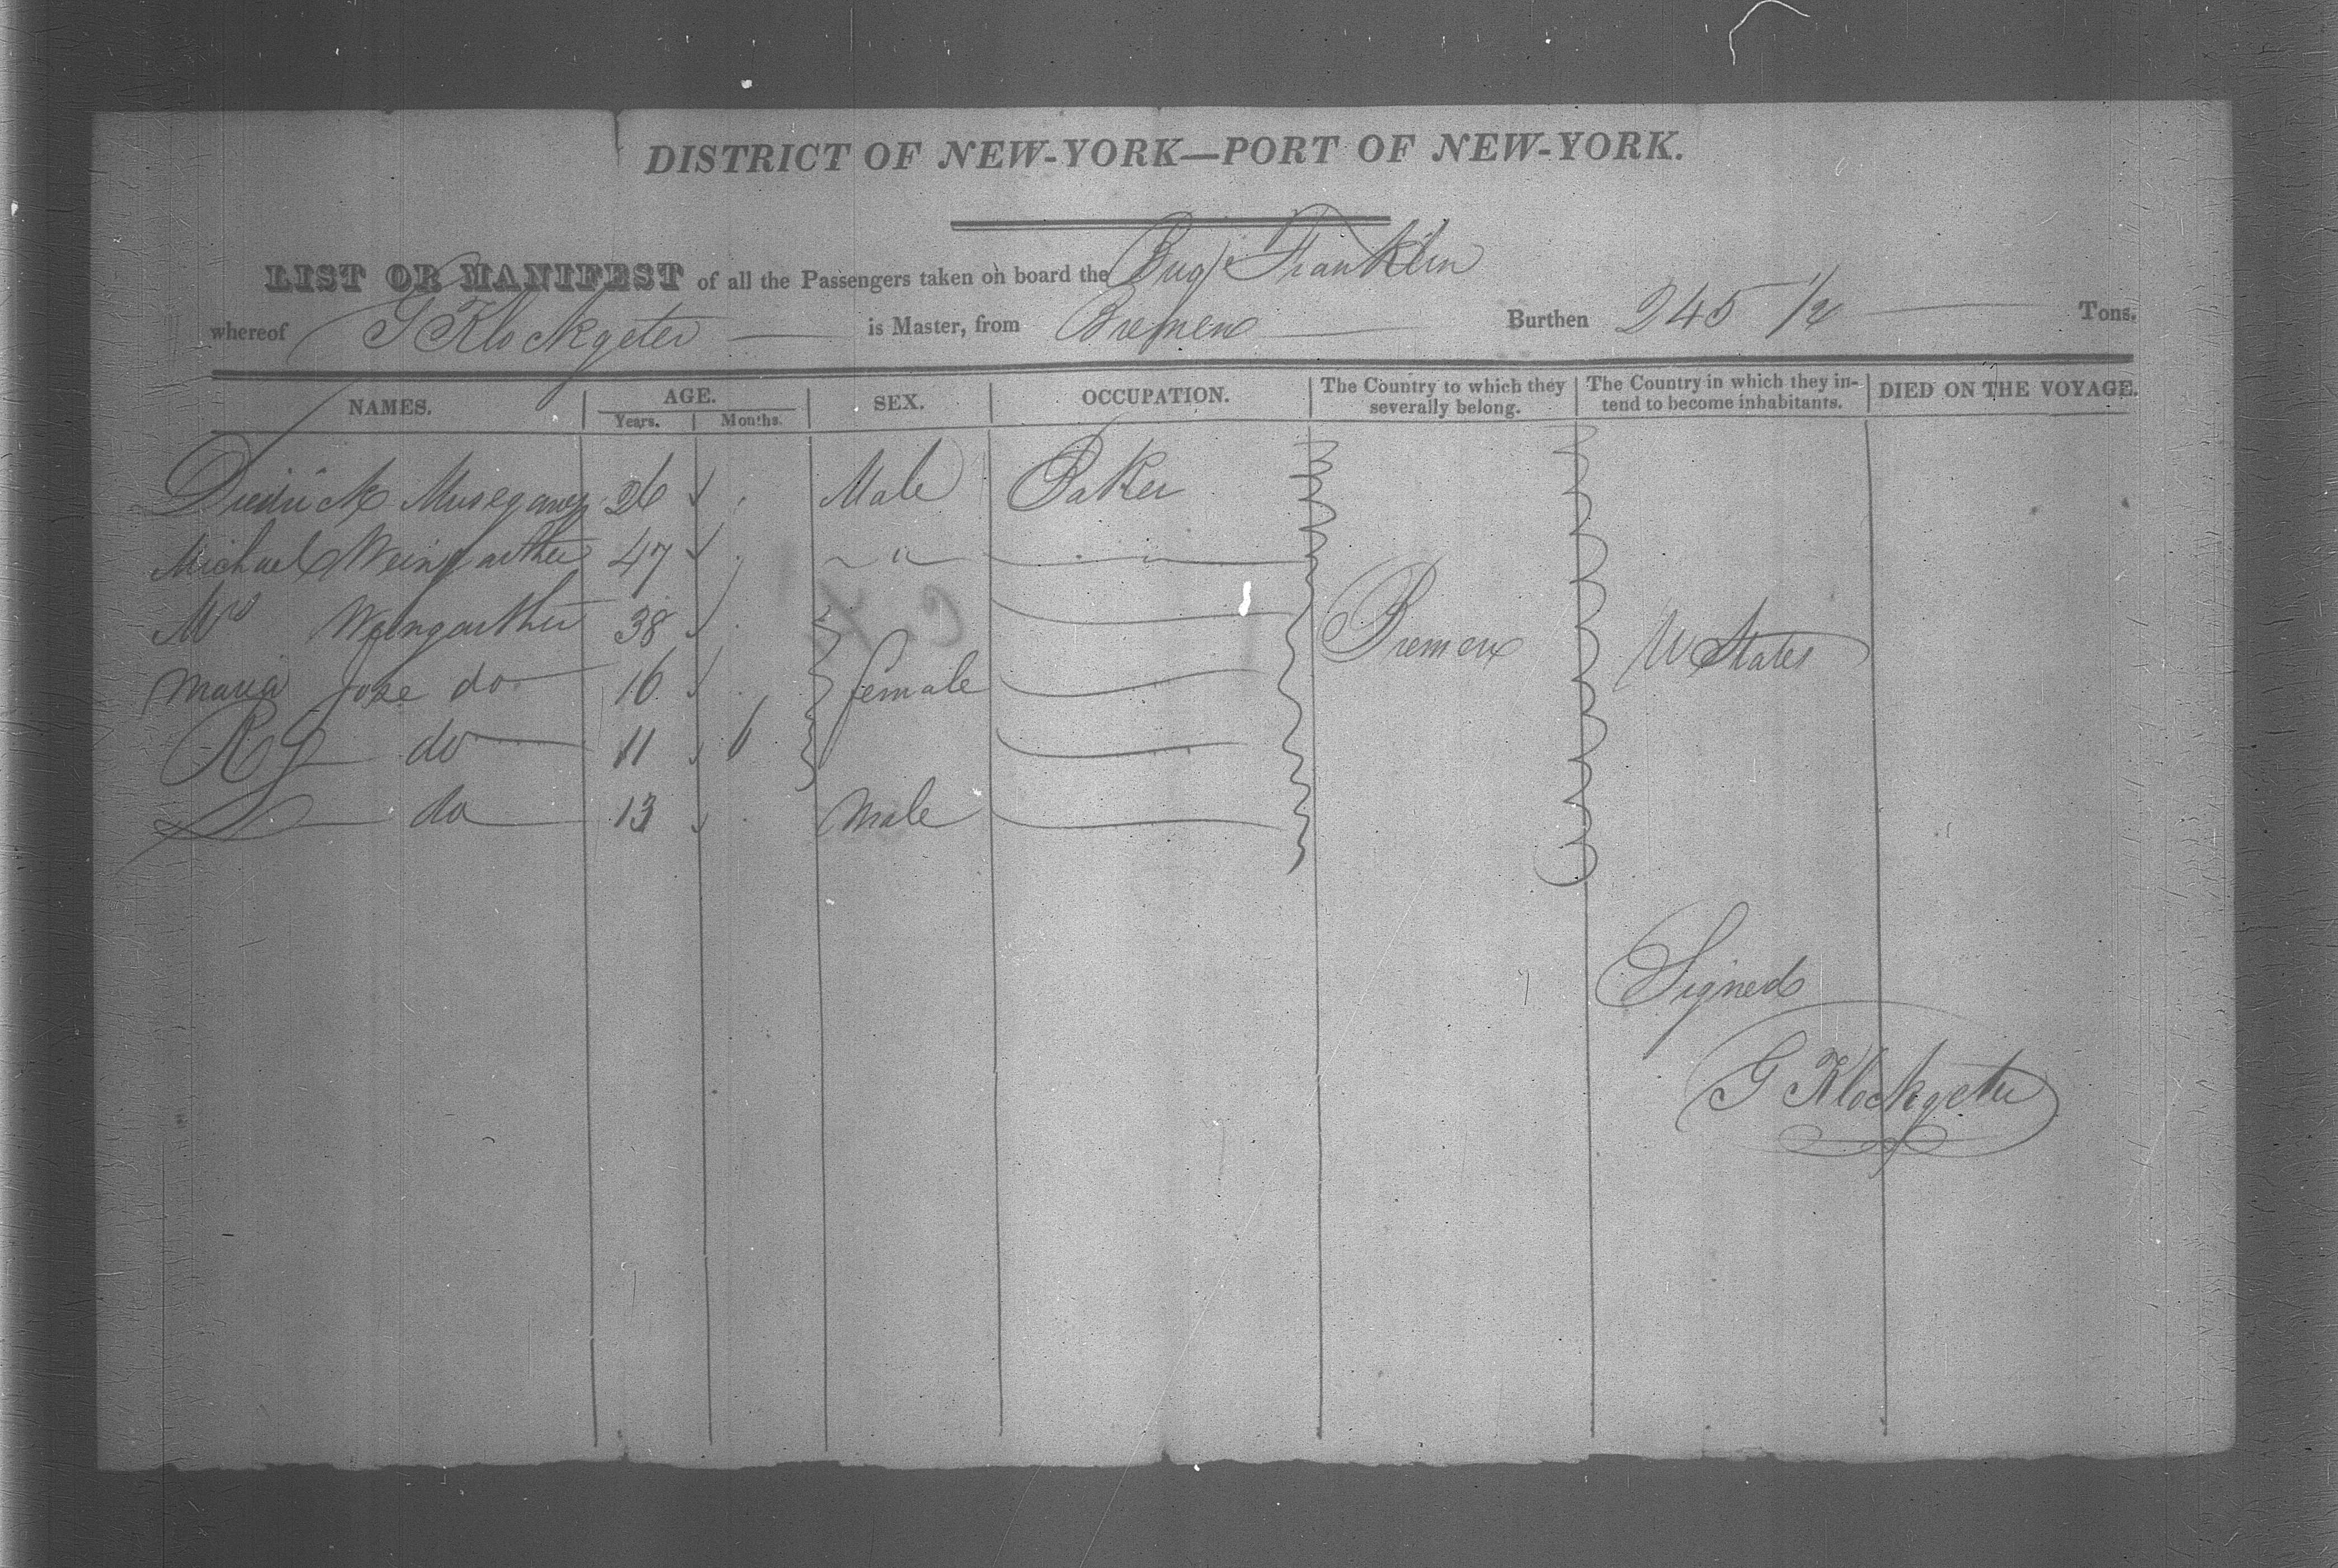 DISTRICT OF NEW-YORK—PORT OF NEW-YORK.
LIST OR MANIFEST of all the Passengers taken on board the Brig Franklin
whereof G Klockgeter is Master, from Bremen Burthen 245 1/2 Tons.
NAMES. AGE. SEX. OCCUPATION. The Country to which they severally belong. The Country in which they intend to become inhabitants. DIED ON THE VOYAGE.
Years. Months.
26 Male Baker
Michael Weingarther 47 "
Mrs Weingarther 38
Maria Jose do 16 female Bremen U States
do 11 6
do 13 Male
Signed
G Klockgeter